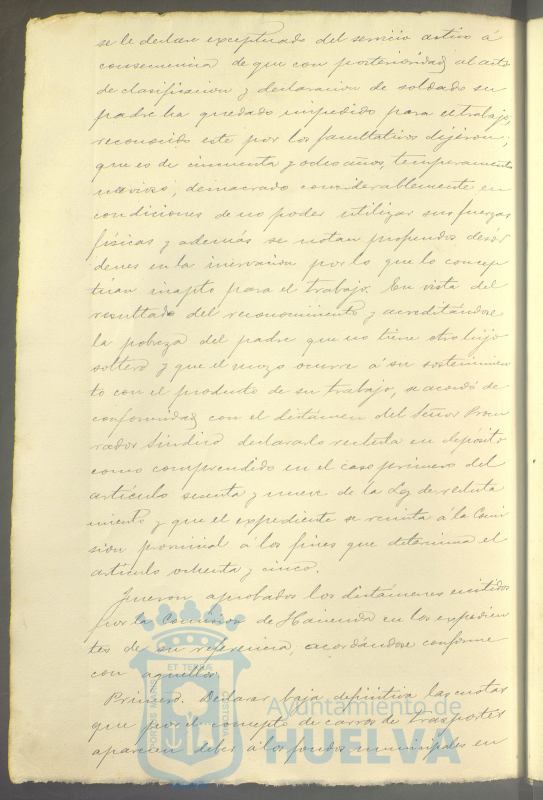 se le declare exceptuado del servicio activo á
consecuencia de que con posterioridad al acto
de clasificacion y declaracion de soldado su
padre ha quedado impedido para el trabajo,
reconocido este por los facultativos dijeron;
que es de cincuenta y ocho años, temperamento
nervioso, demacrado considerablemente en
condiciones de no poder utilizar sus fuerzas
físicas y además se notan profundos desór
denes en la inervacion por lo que lo concep
tuan inapto para el trabajo. En vista del
resultado del reconocimiento y acreditándose
la pobreza del padre que no tiene otro hijo
soltero y que el mozo ocurre á su sostenimien
to con el producto de su trabajo, se acordó de
conformidad con el dictámen del Señor Procu
rador Síndico declararlo recluta en depósito
como comprendido en el caso primero del
artículo sesenta y nueve de la Ley de recluta
miento y que el expediente se remita á la Comi
sion provincial á los fines que determina el
artículo ochenta y cinco.
Fueron aprobados los dictámenes emitidos
por la Comision de Hacienda en los expedien
tes de su referencia, acordándose conforme
con aquellos.
Primero. Declarar baja definitiva las cuotas
que por el concepto de carros de trasportes
aparecen deber á los fondos municipales en
ET TERRÆ
Ayuntamiento de
HUELVA